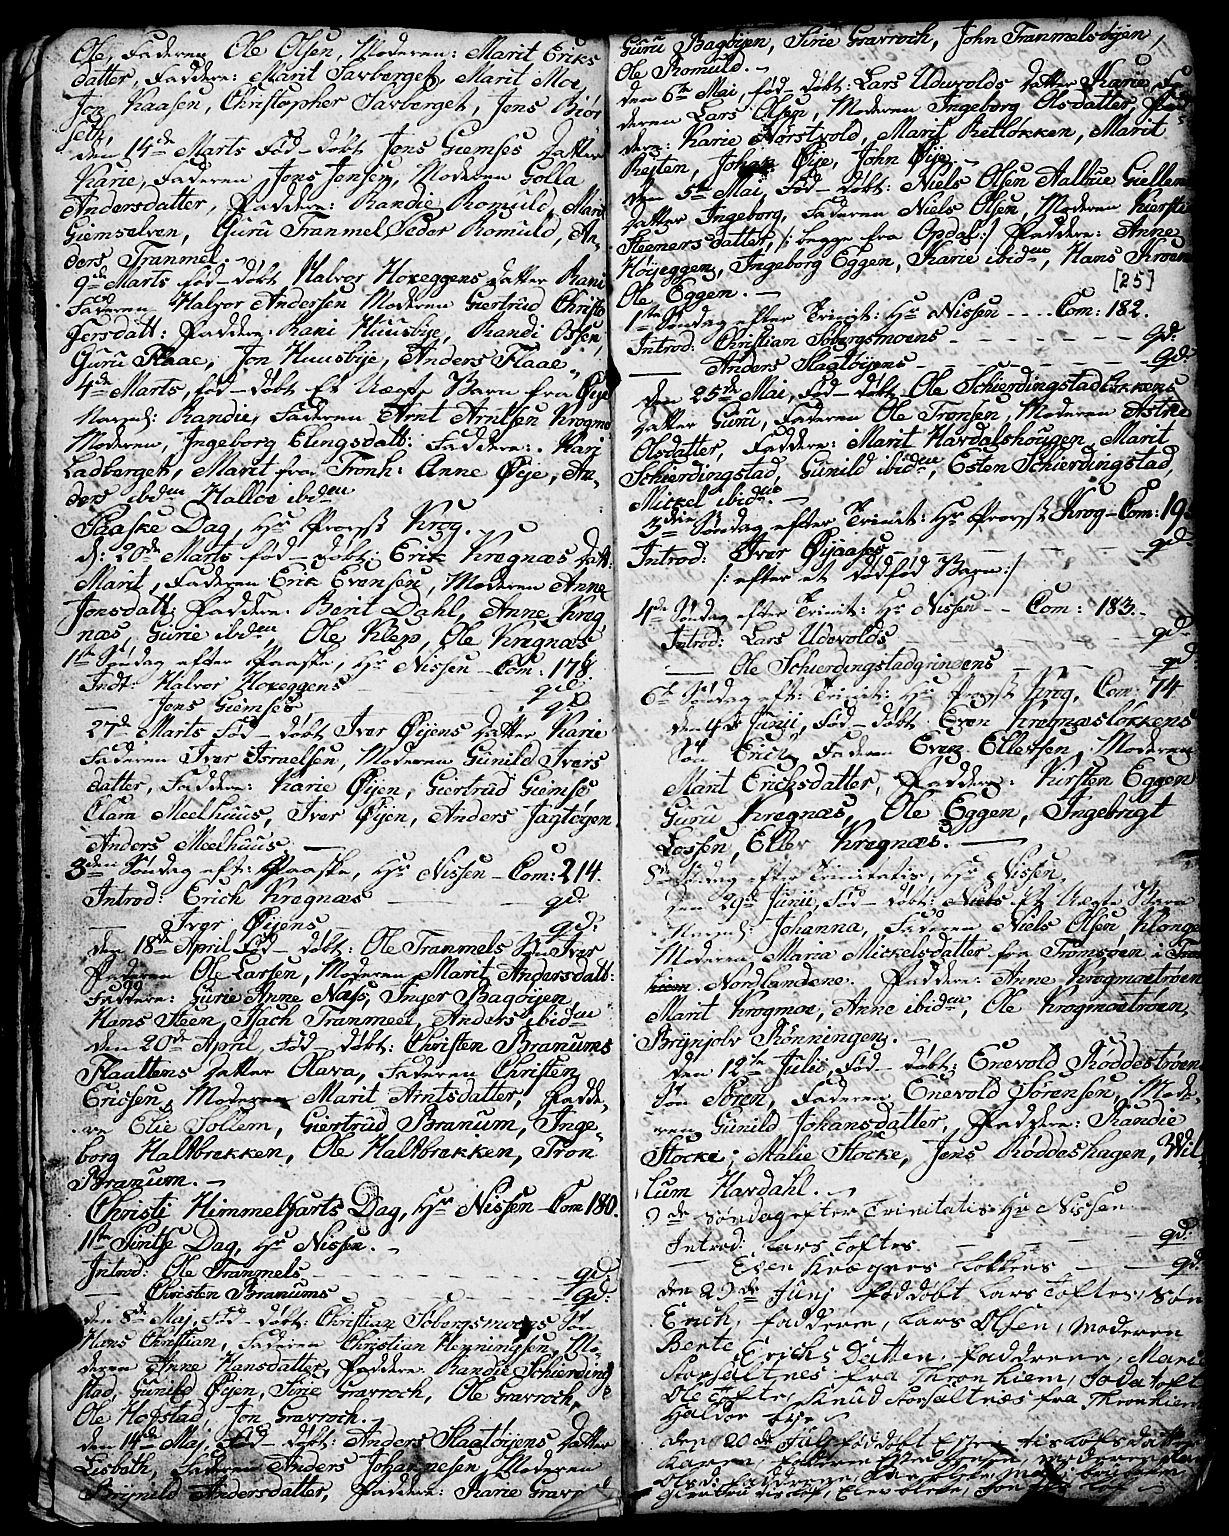 Ole, Faderen Ole Olsen, Moderen: Marit Eriks
datter, Faddere: Marit Sarberget, Marit Moe,
Jon Kaasen, Christopher Sarberget, Jens Biör
seth,
den 14de Marts fød _ døbt Jens Giemses Datter
Karie, Faderen Jens Jensen, Moderen Golla
Andersdatter, Faddere: Randie Romuld, Marit
Giemselven, Guru Tranmel, Peder Romuld, An,
ders Tranmel. _
9de Marts fød _ døbt Halvor Hoxeggens datter Rani
Faderen Halvor Andersen Moderen Giertrud Christo
fersdatt: Faddere: Rani Huusbye, Randi Ossen,
Guru Flaae, Jon Huusbye, Anders Flaae.
4de Marts, fød _ døbt Et Uægte Barn fra Øye
Navnl: Randie, Faderen Arnt Arntsen Krogmo
Moderen, Ingeborg Elingsdatt: Faddere: Kari
Ladberget, Marit fra Tronh: Anne Øye, An,
ders ibidem Halvor ibidem
Paaske Dag, Hr Provst Krog.
d: 20de Marts fød _ døbt: Erik Krognæs Datt:
Marit, Faderen Erik Evensen, Moderen Anne
Jonsdatt: Faddere: Berit Dahl, Anne Krog,
næs, Gurie ibidem, Ole Klep, Ole Krognæs
1te Søndag efter Paaske, Hr Nissen _ Com: 178.
Indt: Halvor Hoxeggens _ _ gd.
_ Jens Giemses _ _ gd
27de Marts Fød _ døbt Iver Øyens Datter Karie
Faderen Iver Israelsen, Moderen Gunild Ivers
datter, Faddere: Karie Øyen, Giertrud Giemse,
Clara Meelhuus, Iver Øyen, Anders Jagtøyen,
Anders Meelhuus. _
3den Søndag eft: Paaske, Hr Nissen _ Com: 214.
Introd: Erich Krognæs _ _ gd.
_ Iver Øyens _ _ gd:
den 18de April Fød _ døbt: Ole Tranmels Søn Iver
Faderen Ole Larsen, Moderen Marit Andersdatt:
Faddere: Gurie Anne Næss, Inger Bagøyen,
Hans Steen, Tranmel, Anders ibidem
den 20de April fød _ døbt: Christen Branums
Flaattems Datter Olava, Faderen Christen
Ericsen, Moderen Marit Arntsdatter, Fadde,
re Elie Sollem, Giertrud Branum, Inge,
borg Haltbrekken, Ole Haltbrekken, Tron
Branum. _
Christi Himmelfarts Dag, Hr Nissen _ Com 180.
1te Pintse Dag, Hr Nissen. _
Introd: Ole Tranmels _ _ gd
_ Christen Branums _ _ gd:
den 8de Maj, Fød _ døbt: Christian Søbergsmoens Søn
Hans Christian, Faderen Christian Henningsen, Mo,
deren Anne Hansdatter, Faddere: Randie Schierding,
stad, Gunild Øyen, Sirie Gravroch, Ole Gravroch,
Ole Hofstad, Jon Gravroch. _
den 14de Maj, Fød _ døbt: Anders Slagtøyens Datter
Lisbeth, Faderen Anders Johannesen, Moderen
Brynild Andersdatter, Faddere: Karie Gravr
Guru Bagøyen, Sirie Gravroch, John Tranmelsøyen,
Ole Romuld. _
den 6te Mai, fød _ døbt: Lars Udevolds Datter Karie, Fa
deren Lars Olsen, Moderen Ingeborg Olsdatter, Fad
dere: Karie Norstvold, Marit Retløkken, Marit
Rejten, Johan Øye, John Øye. _
den 5te Mai, fød _ døbt: Niels Olsen Aalbue
Datter Ingeborg, Faderen Niels Olsen, Moderen Kiersti
Steenersdatter, /: begge fra Opdal:/ Faddere: Anne
Høyeggen, Ingeborg Eggen, Karie ibidem, Hans Kroen
Ole Eggen. _ [25]
1te Søndag efter Trinit: Hr Nissen _ _ Com: 182.
Introd: Christian Søbergsmoens _ _ gd:
_ Anders Slagtøyens _ _ gd:
den 25de Mai, fød _ døbt Ole Schierdingstadløkkens
Datter Guru, Faderen Ole Tronsen, Moderen Astrie
Olsdatter, Faddere: Marit Havdalshougen, Marit
Schierdingstad, Gunild ibidem, Esten Schierdingstad,
Mickel ibidem. _
3die Søndag efter Trinit: Hr Provst Krog _ Com: 19
Introd: Iver Øyaases _ _ gd
/: efter et dødfød Barn:/
4de Søndag efter Trinit: Hr Nissen _ _ Com: 183. _
Introd: Lars Udevolds _ _ gd.
_ Ole Schierdingstadgrindens _ _ gd:
6te Søndag eft: Trinit: Hr Provst Krog, Com: 74
den 4de Junii, fød _ døbt Even Krognæsløkkens
Søn Erich, Faderen Even Ellefsen, Moderen
Marit Ericksdatter, Faddere: Kirsten Eggen
Guru Krognæs, Ole Eggen, Ingebrigt
Lossen, Ellev Krognæs. _
8de Søndag efter Trinitatis, Hr Nissen.
den 29de Junii, fød _ døbt: Et Uægte Barn
Navnl: Johanna, Faderen Niels Olsen Klonge
Moderen Maria Mickelsdatter fra Tromsøen i
Nordlandene. Faddere: Anne Krogmoetrøen
Marit Krogmoe, Anne ibidem, Ole Krogmoetrøen,
Brynjolv Rønningen. _
den 12te Julii, fød _ døbt: Enevold Røddestrøens
Søn Søren, Faderen Enevold Sørensen, Mode,
ren Gunild Johansdatter, Faddere: Randie
Stocke, Malie Stocke, Jens Røddeshagen, Wil,
lum Havdahl. _
9de Søndag efter Trinitatis Hr Nissen
Introd: Lars Toftes _ _ gd:
_ Even Krognes Løkkens _ _ gd:
den 29de Junj fød døbt Lars Toftes Søn
Erich, Faderen, Lars Olsen, Moderen
Berte Erichs Datter, Faddere, Mari
Storsaltnes fra Thronhiem, Toft
Ole Tofte, Knud Storsaltnes fra Thronhiem
Haldor Øye
den 20de Julj fød døbt
Karen, Faderen
Faddere,